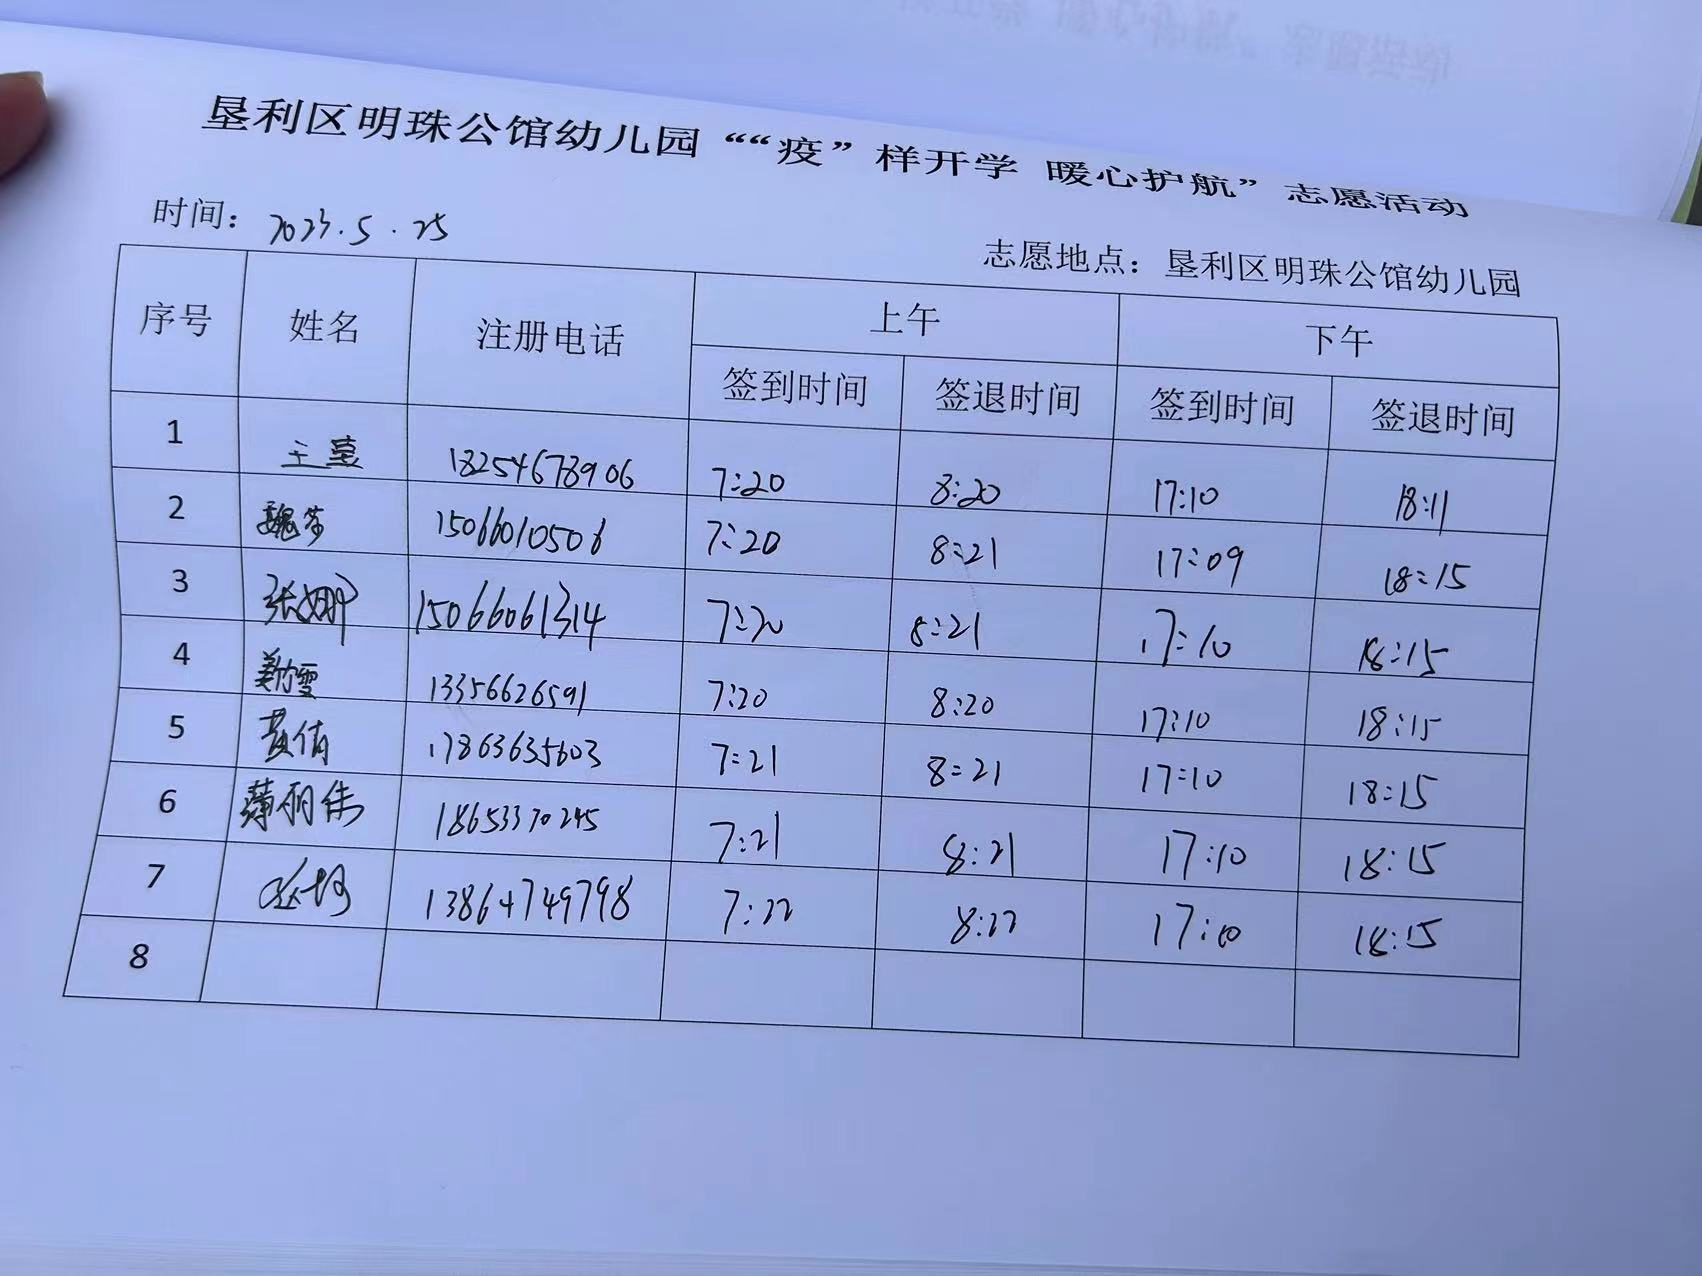 垦利区明珠公馆幼儿园 ““疫” 样开学 暖心护航” 志愿活动
时间: 2023.5.25
志愿地点: 垦利区明珠公馆幼儿园
序号 姓名 注册电话 上午 下午
签到时间 签退时间 签到时间 签退时间
1 18254678906 7:20 8:20 17:10 18:11
2 15066010506 7:20 8:21 17:09 18:15
3 张娜 15066061314 7:20 8:21 17:10 18:15
4 13356626591 7:20 8:20 17:10 18:15
5 黄倩 17863635603 7:21 8:21 17:10 18:15
6 薄丽伟 18653370245 7:21 8:21 17:10 18:15
7 13864749798 7:22 8:22 17:10 18:15
8